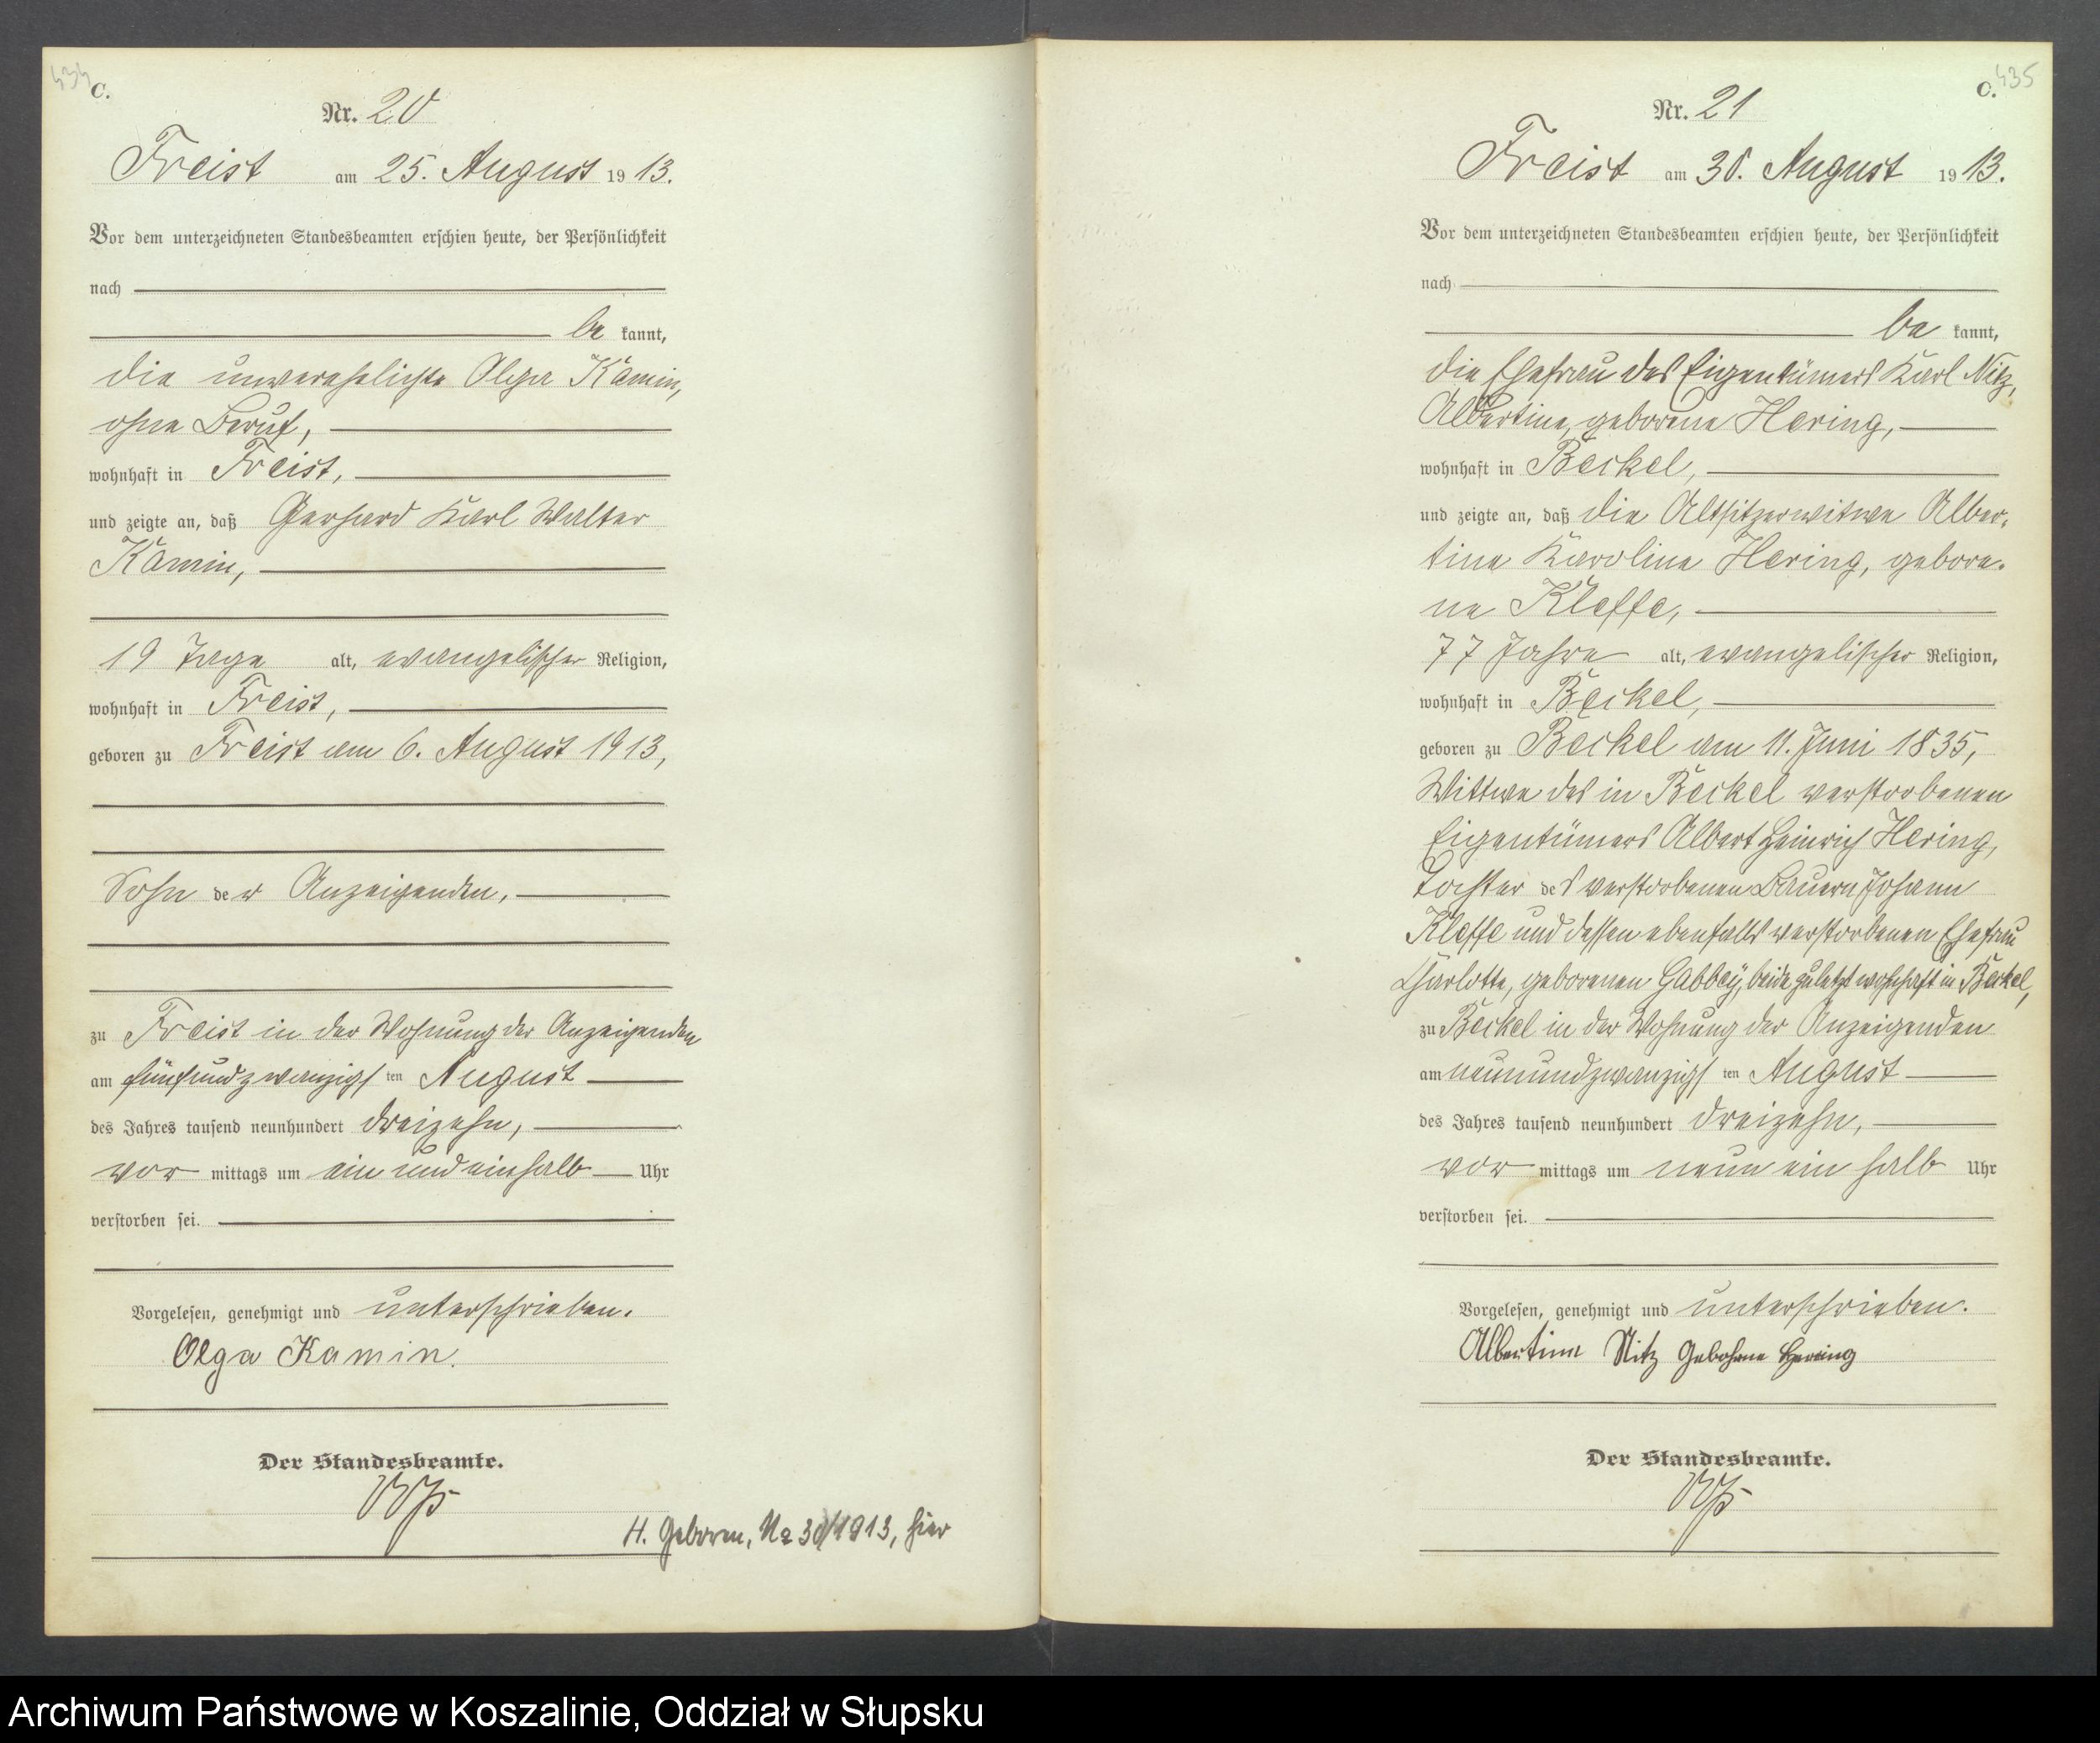 434
C.
Nr. 20
Freist am 25. August 1913.
Vor dem unterzeichneten Standesbeamten erschien heute, der Persönlichkeit
nach
be kannt,
die unverehelichte Olga Kamin,
ohne Beruf,
wohnhaft in Freist,
und zeigte an, daß Gerhard Karl Walter
Kamin,
19 Tage alt, evangelischer Religion,
wohnhaft in Freist,
geboren zu Freist am 6. August 1913,
Sohn der Anzeigenden,
zu Freist in der Wohnung der Anzeigenden
am fünfundzwanzigsten August
des Jahres tausend neunhundert dreizehn,
vor mittags um ein und einhalb Uhr
verstorben sei.
Vorgelesen, genehmigt und unterschrieben.
Olga Kamin.
Der Standesbeamte.
H. Geboren, No 30/1913, hier
C.
435
Nr. 21
Freist am 30. August 1913.
Vor dem unterzeichneten Standesbeamten erschien heute, der Persönlichkeit
nach
be kannt,
die Ehefrau des Eigentümers Karl Nitz,
Albertine, geborene Hering,
wohnhaft in Beckel,
und zeigte an, daß die Altsitzerwitwe Alber-
tine Karoline Hering, gebore-
ne Kleffe,
77 Jahre alt, evangelischer Religion,
wohnhaft in Beckel,
geboren zu Beckel am 11. Juni 1835,
Wittwe des in Beckel verstorbenen
Eigentümers Albert Heinrich Hering,
Tochter des verstorbenen Bauern Johann
Kleffe und dessen ebenfalls verstorbenen Ehefrau
Charlotte, geborenen Gabbey, beide zuletzt wohnhaft in Beckel,
zu Beckel in der Wohnung der Anzeigenden
am neunundzwanzigsten August
des Jahres tausend neunhundert dreizehn,
vor mittags um neun ein halb Uhr
verstorben sei.
Vorgelesen, genehmigt und unterschrieben.
Albertine Nitz Gebohrne Hering
Der Standesbeamte.
Archiwum Państwowe w Koszalinie, Oddział w Słupsku